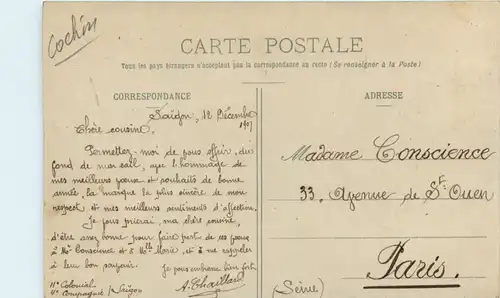 Cochin
CARTE POSTALE
Tous les pays étrangers n'acceptent pas la correspondance au recto (Se renseigner à la Poste)
CORRESPONDANCE
ADRESSE
Saïgon, 12 Décembre
1907
Chère cousine,
Permettez-moi de vous offrir, du
fond de mon exil, avec l'hommage de
mes meilleurs vœux et souhaits de bonne
année, la marque la plus sincère de mon
respect et mes meilleurs sentiments d'affection.
Je vous prierai, ma chère cousine,
d'être assez bonne pour faire part de ces vœux
à Mr Conscience et à Mlle Marie, et à me rappeler
à leur bon souvenir.
Je vous embrasse bien fort
11e Colonial
4e Compagnie Saïgon
Madame Conscience
33, Avenue de St Ouen
Paris.
(Seine)